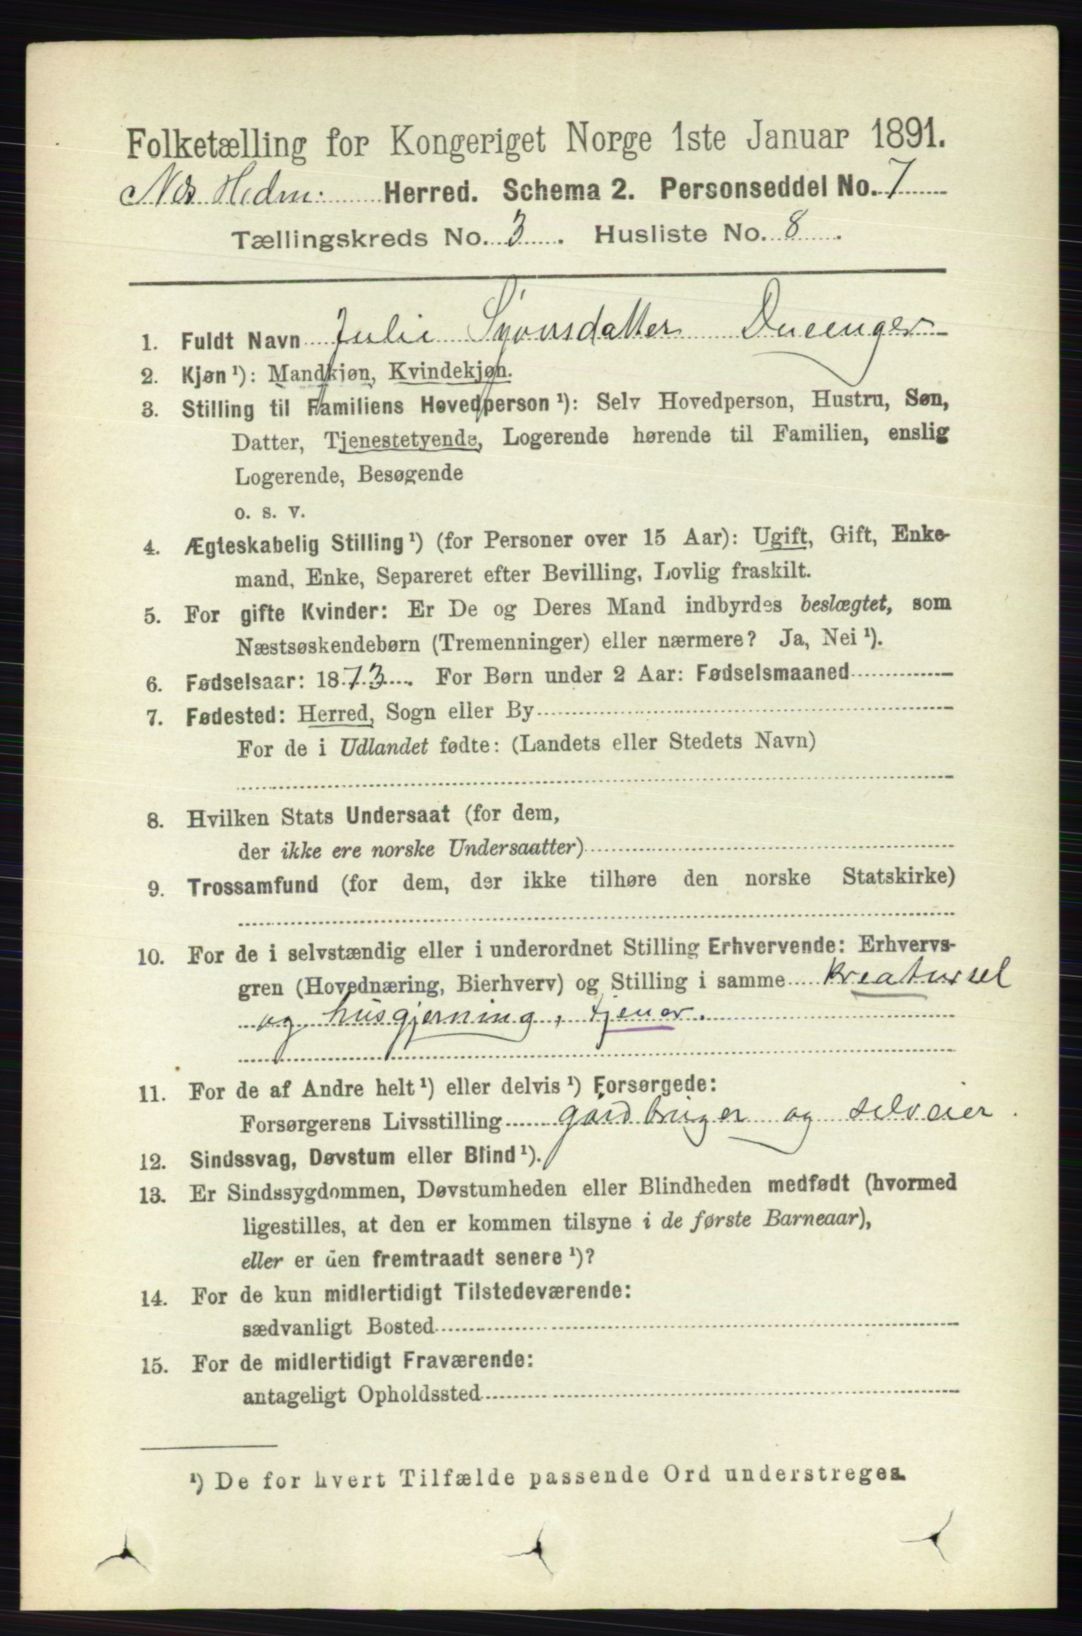 Folketælling for Kongeriget Norge 1ste Januar 1891.
Nes Hedm. Herred. Schema 2. Personseddel No. 7
Tællingskreds No. 3. Husliste No. 8.
1. Fuldt Navn Julie Syversdatter
2. Kjøn ¹): Mandkjøn, Kvindekjøn.
3. Stilling til Familiens Hovedperson ¹): Selv Hovedperson, Hustru, Søn,
Datter, Tjenestetyende, Logerende hørende til Familien, enslig
Logerende, Besøgende
o. s. v.
4. Ægteskabelig Stilling ¹) (for Personer over 15 Aar): Ugift, Gift, Enke-
mand, Enke, Separeret efter Bevilling, Lovlig fraskilt.
5. For gifte Kvinder: Er De og Deres Mand indbyrdes beslægtet, som
Næstsøskendebørn (Tremenninger) eller nærmere? Ja, Nei ¹).
6. Fødselsaar: 1873. For Børn under 2 Aar: Fødselsmaaned
7. Fødested: Herred, Sogn eller By
For de i Udlandet fødte: (Landets eller Stedets Navn)
8. Hvilken Stats Undersaat (for dem,
der ikke ere norske Undersaatter)
9. Trossamfund (for dem, der ikke tilhøre den norske Statskirke)
10. For de i selvstændig eller i underordnet Stilling Erhvervende: Erhvervs-
gren (Hovednæring, Bierhverv) og Stilling i samme kreaturstel
og husgjerning, tjener.
11. For de af Andre helt ¹) eller delvis ¹) Forsørgede:
Forsørgerens Livsstilling gårdbruger og selveier.
12. Sindssvag, Døvstum eller Blind ¹).
13. Er Sindssygdommen, Døvstumheden eller Blindheden medfødt (hvormed
ligestilles, at den er kommen tilsyne i de første Barneaar),
eller er den fremtraadt senere ¹)?
14. For de kun midlertidigt Tilstedeværende:
sædvanligt Bosted
15. For de midlertidigt Fraværende:
antageligt Opholdssted
¹) De for hvert Tilfælde passende Ord understreges.